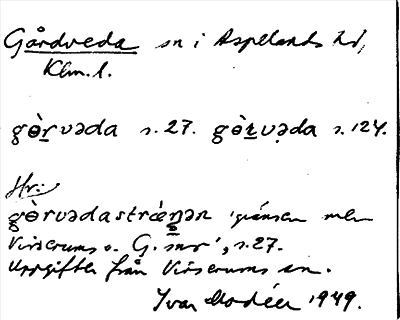 Gårdveda sn i Aspelands hd,
Klm. l.
gò̱rvəda s. 27. gò̱rvəda s. 124.
Hr:
gò̱rvədastræ̀ŋən 'gränsen mellan
Virserums o. G. snr', s. 27.
Uppgifter från Virserums sn.
Ivar Modéer 1949.